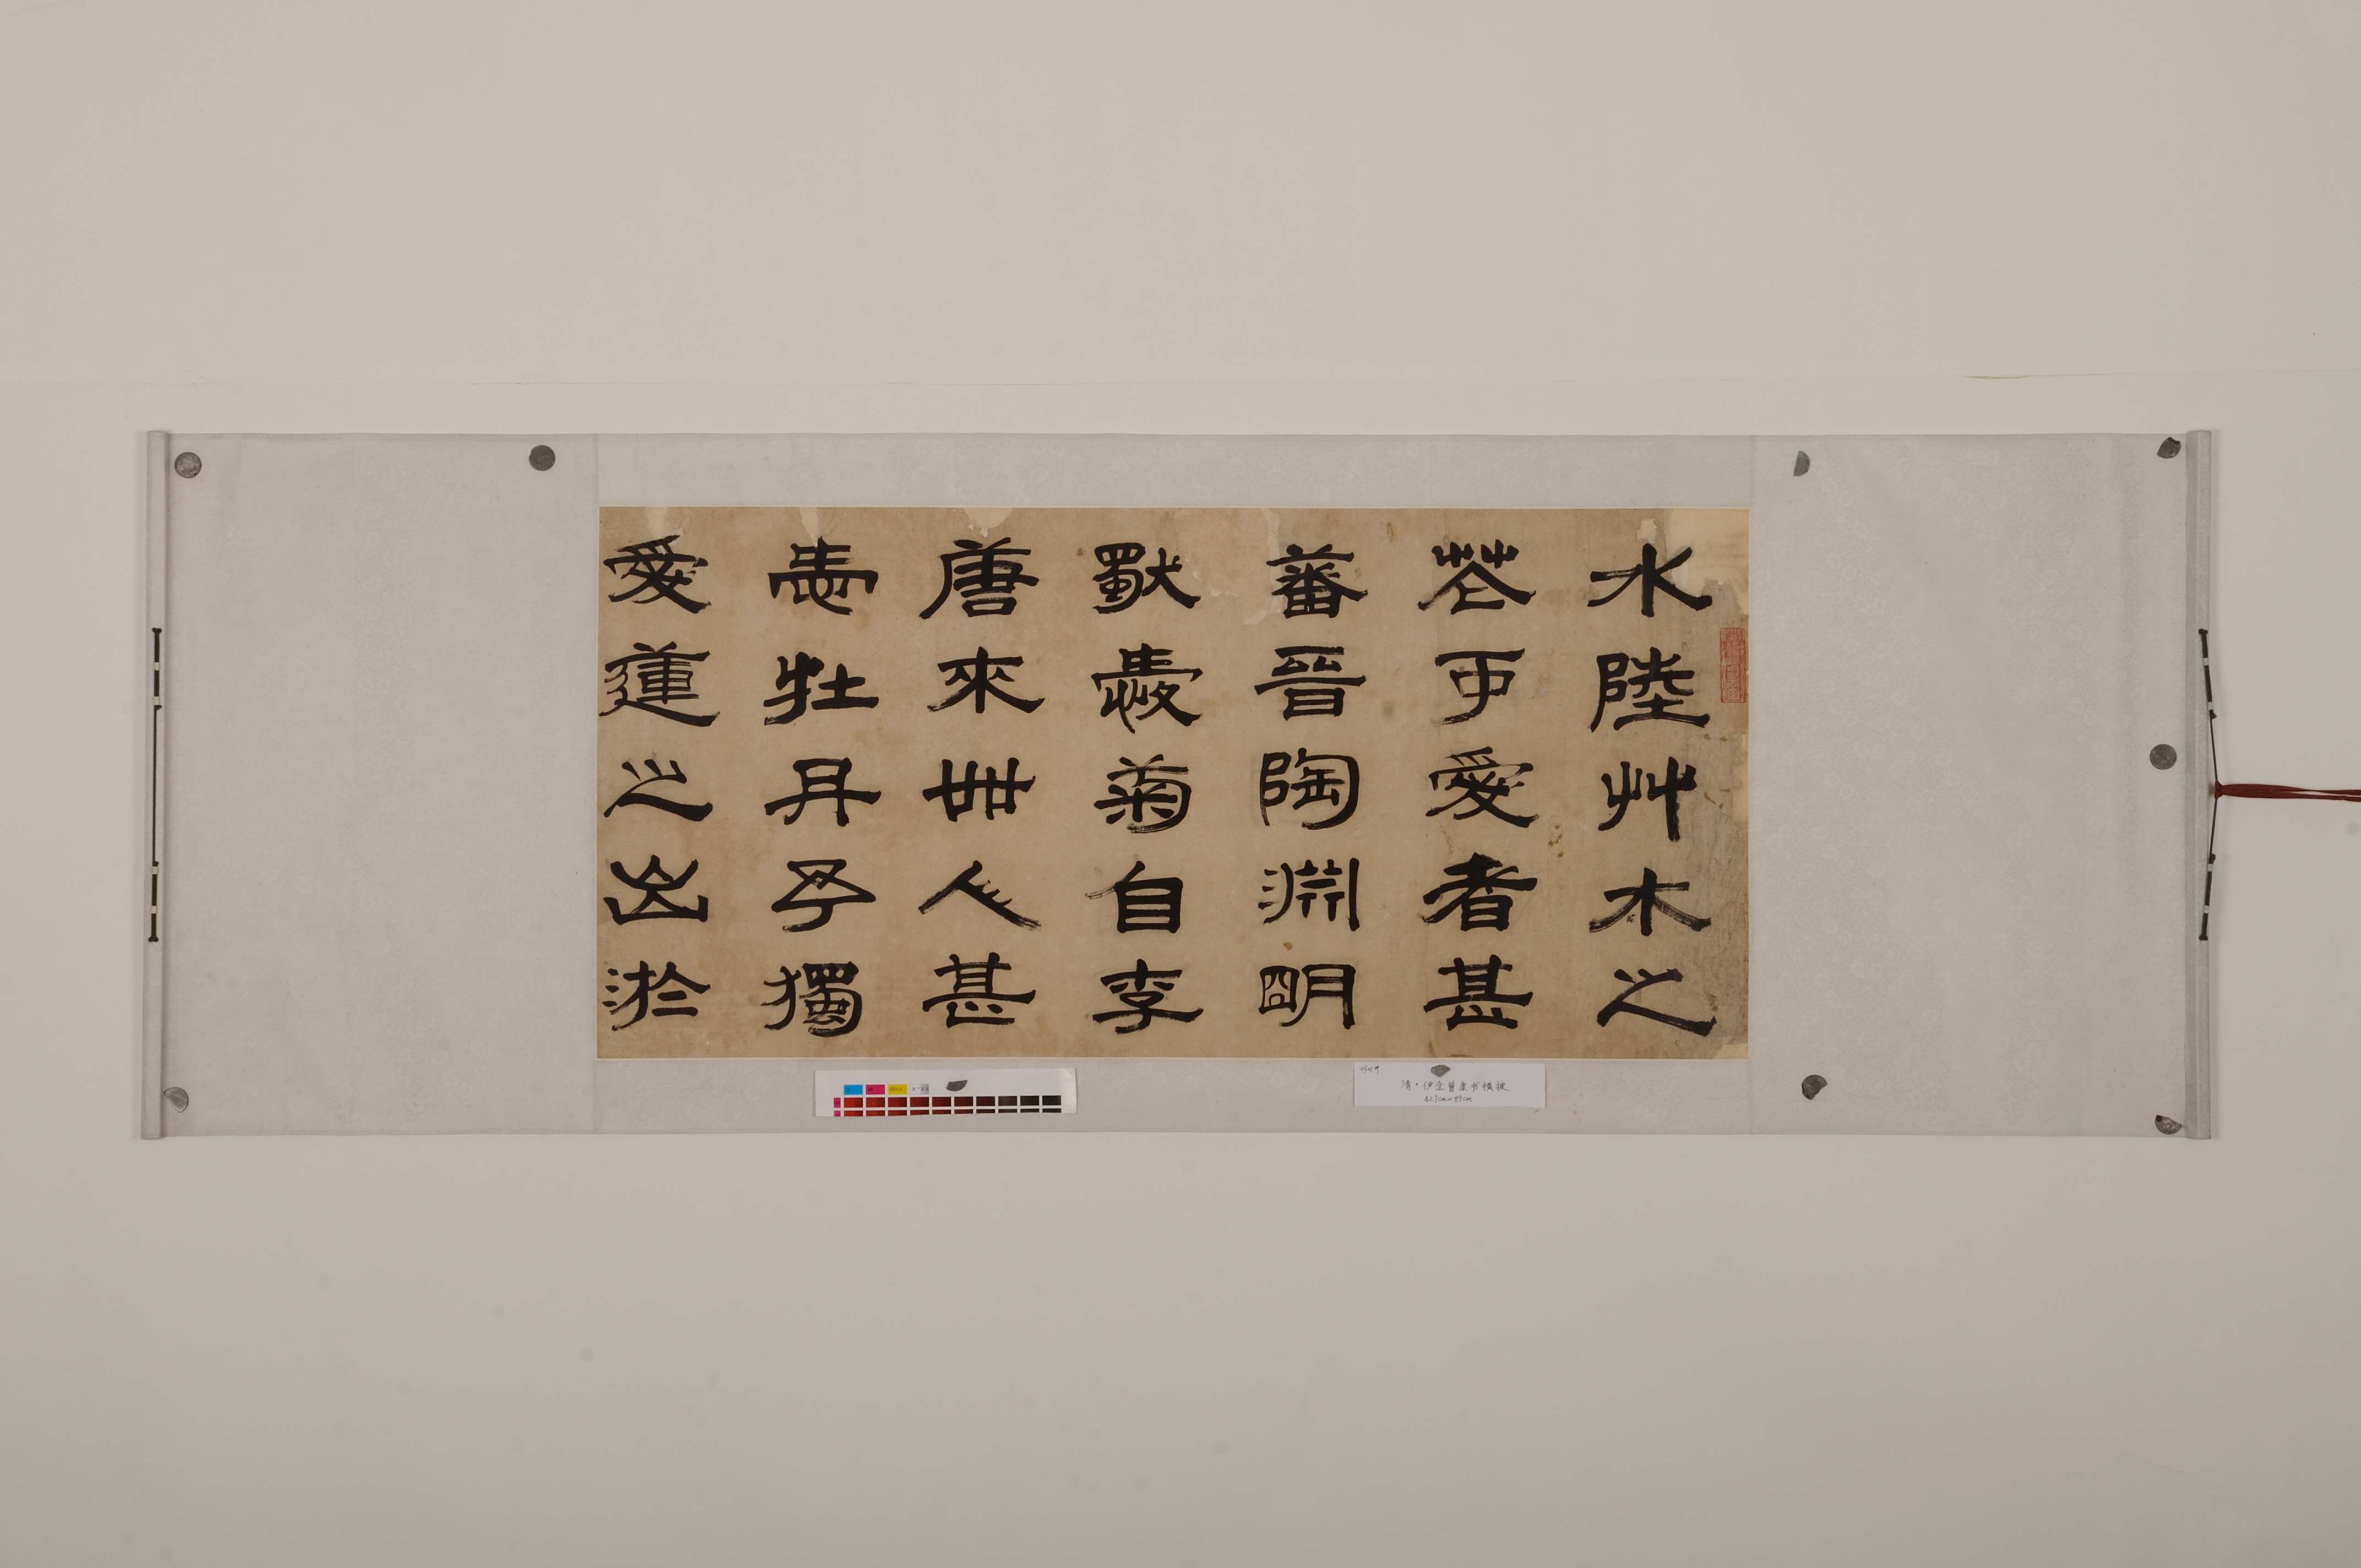 水陸艸木之
花可愛者甚
蕃晉陶淵明
獸愛菊自李
唐來丗人甚
愛牡丹予獨
愛蓮之出淤
清·伊念曾隶书横披